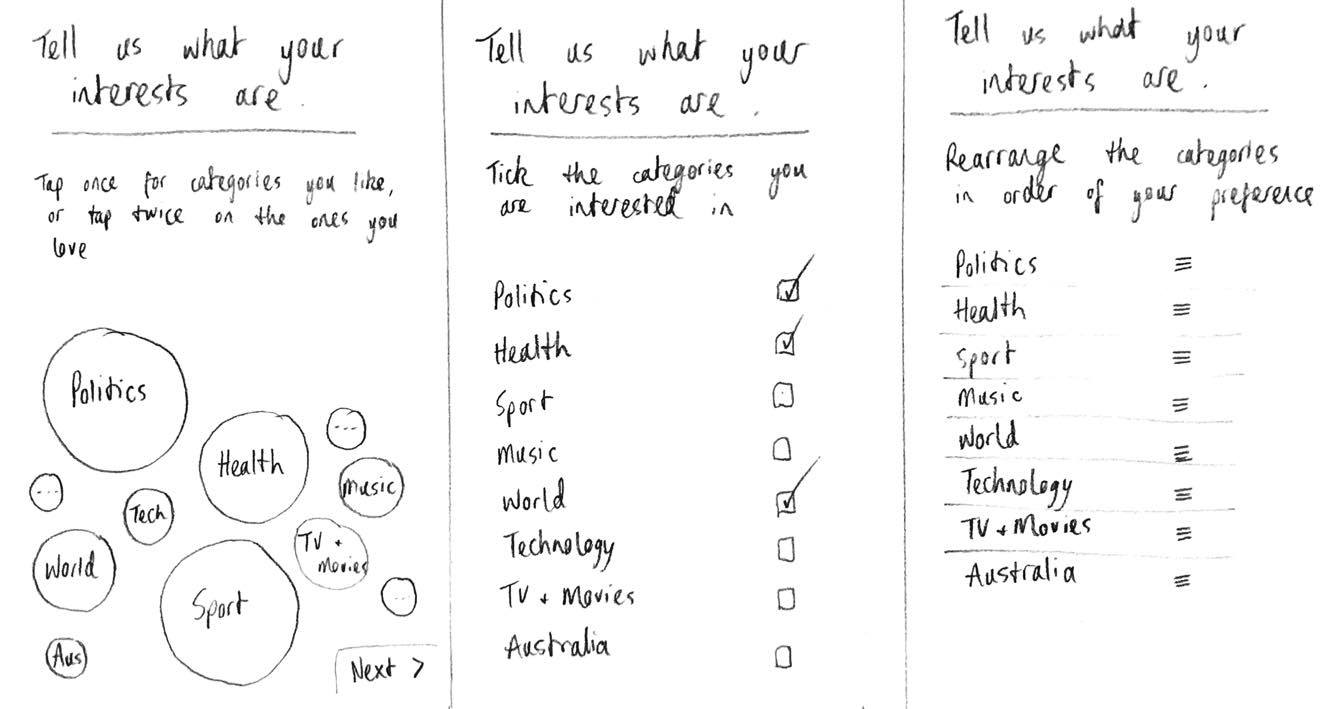 Tell us what your
interests are.
Tap once for categories you like,
or tap twice on the ones you
love
Politics
Health
...
Music
...
Tech
TV + Movies
World
Sport
...
Aus
Next >
Tell us what your
interests are.
Tick the categories you
are interested in
Politics
Health
Sport
Music
World
Technology
TV + Movies
Australia
Tell us what your
interests are.
Rearrange the categories
in order of your preference
Politics
Health
Sport
Music
World
Technology
TV + Movies
Australia